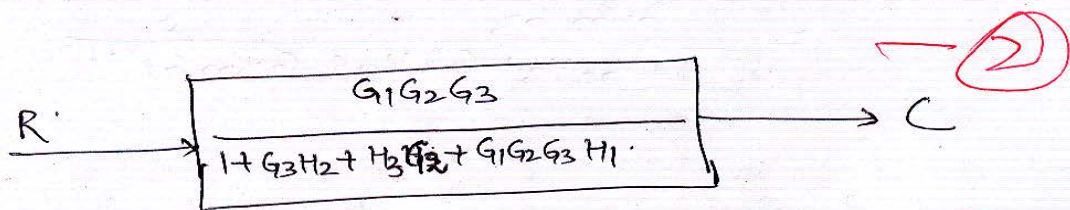 2
G1G2G3
R
C
1+G3H2+H3G2+G1G2G3H1